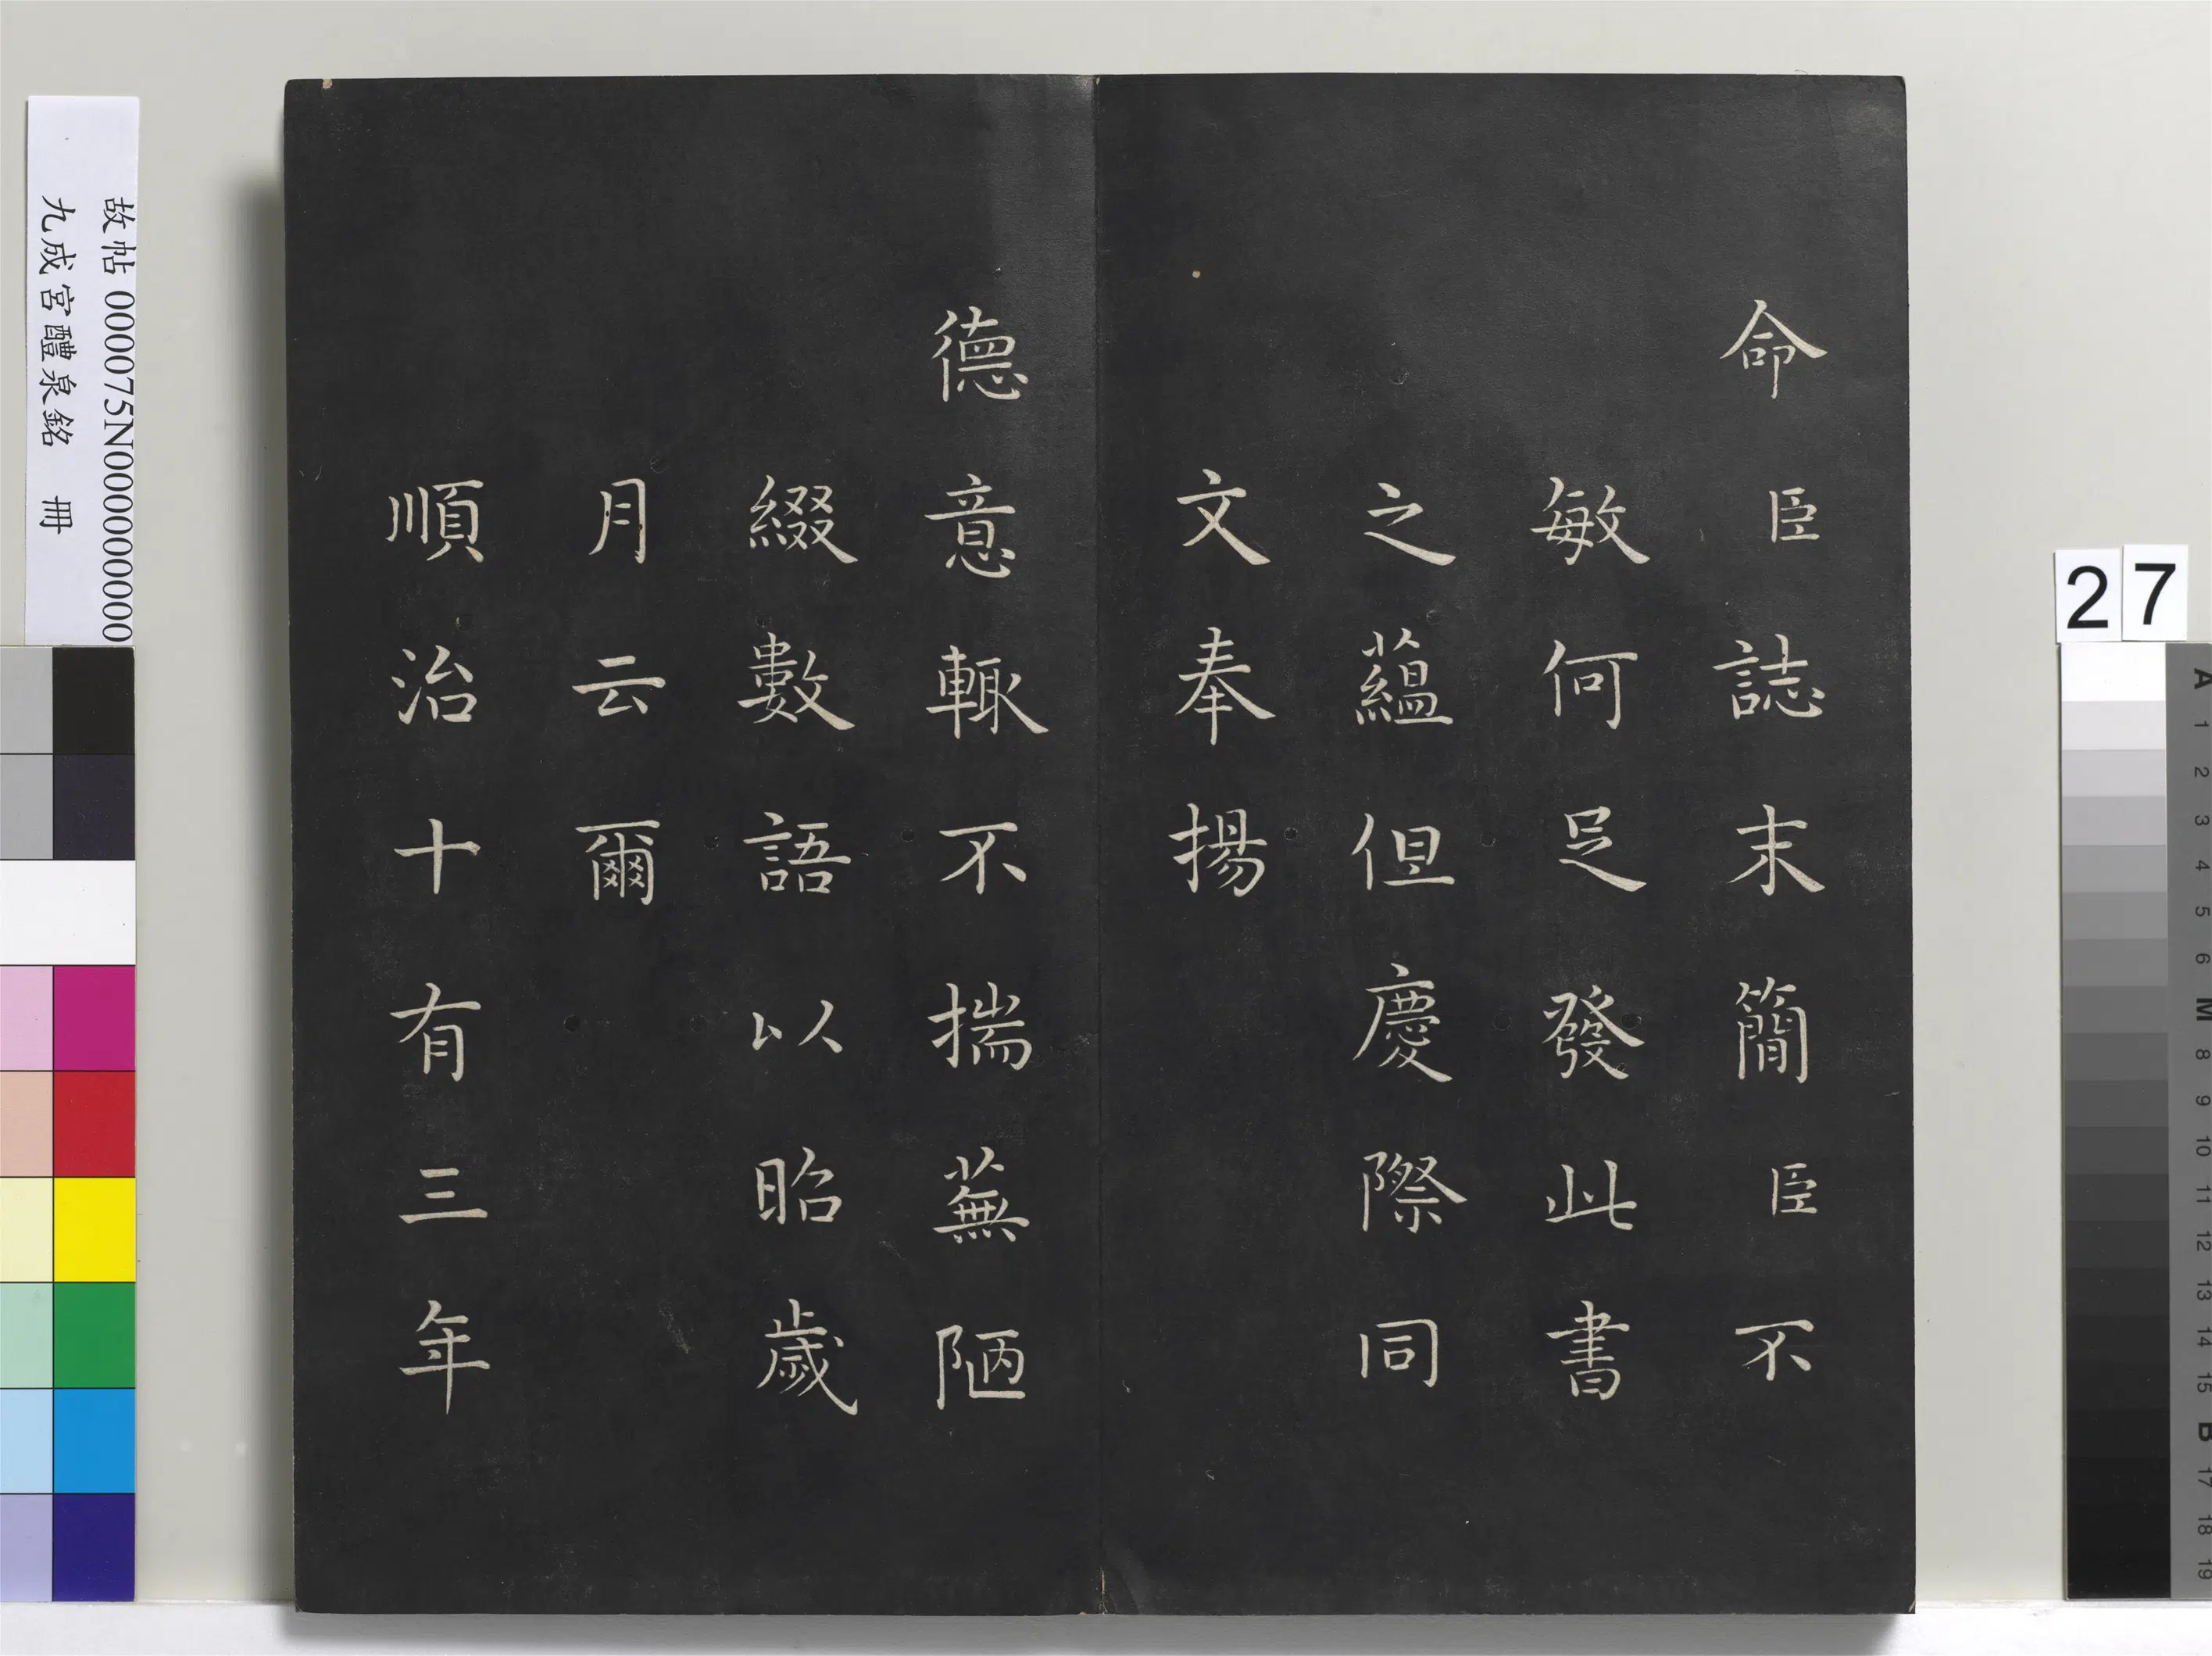 命臣誌末簡臣不
敏何足發此書
之蘊但慶際同
文奉揚
德意輙不揣蕪陋
綴數語以昭歲
月云爾
順治十有三年
故帖 000075N000000000
九成宮醴泉銘 冊
27
A 1 2 3 4 5 6 M 8 9 10 11 12 13 14 15 B 17 18 19